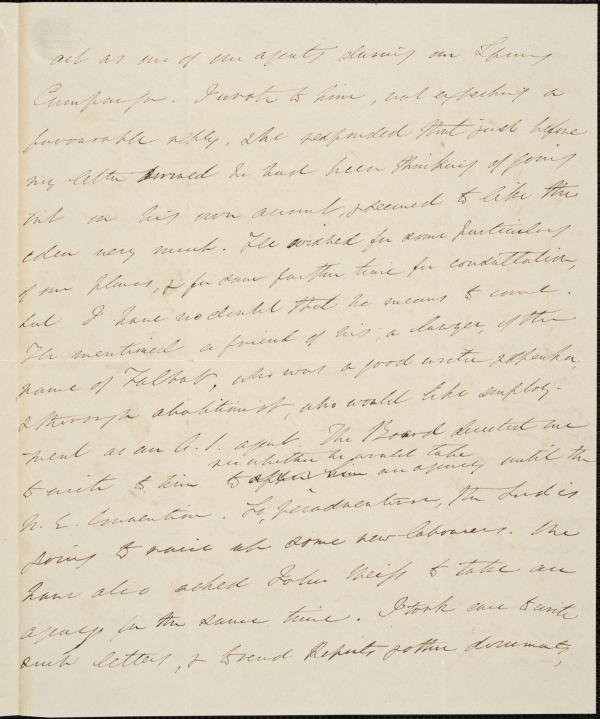 act as one of our agents during our Spring
Campaign. I wrote to him, not expecting a
favourable reply. He responded that just before
my letter arrived he had been thinking of going
out on his own account, & seemed to like the
idea very much. He wished for some particulars
of our plans, & for some further time for consultation,
but I have no doubt that he means to come.
He mentioned a friend of his, a lawyer, of the
name of Talbot, who was a good writer & speaker,
& thorough abolitionist, who would like employ-
ment as an A. S. agent. The Board directed me
see whether he would take
to write to him to offer him an agency until the
N. E. Convention. So, peradventure, the Lord is
going to raise up some new labourers. We
have also asked John Weiss to take an
agency for the same time. I took care to write
such letters, & to send Reports & other documents,